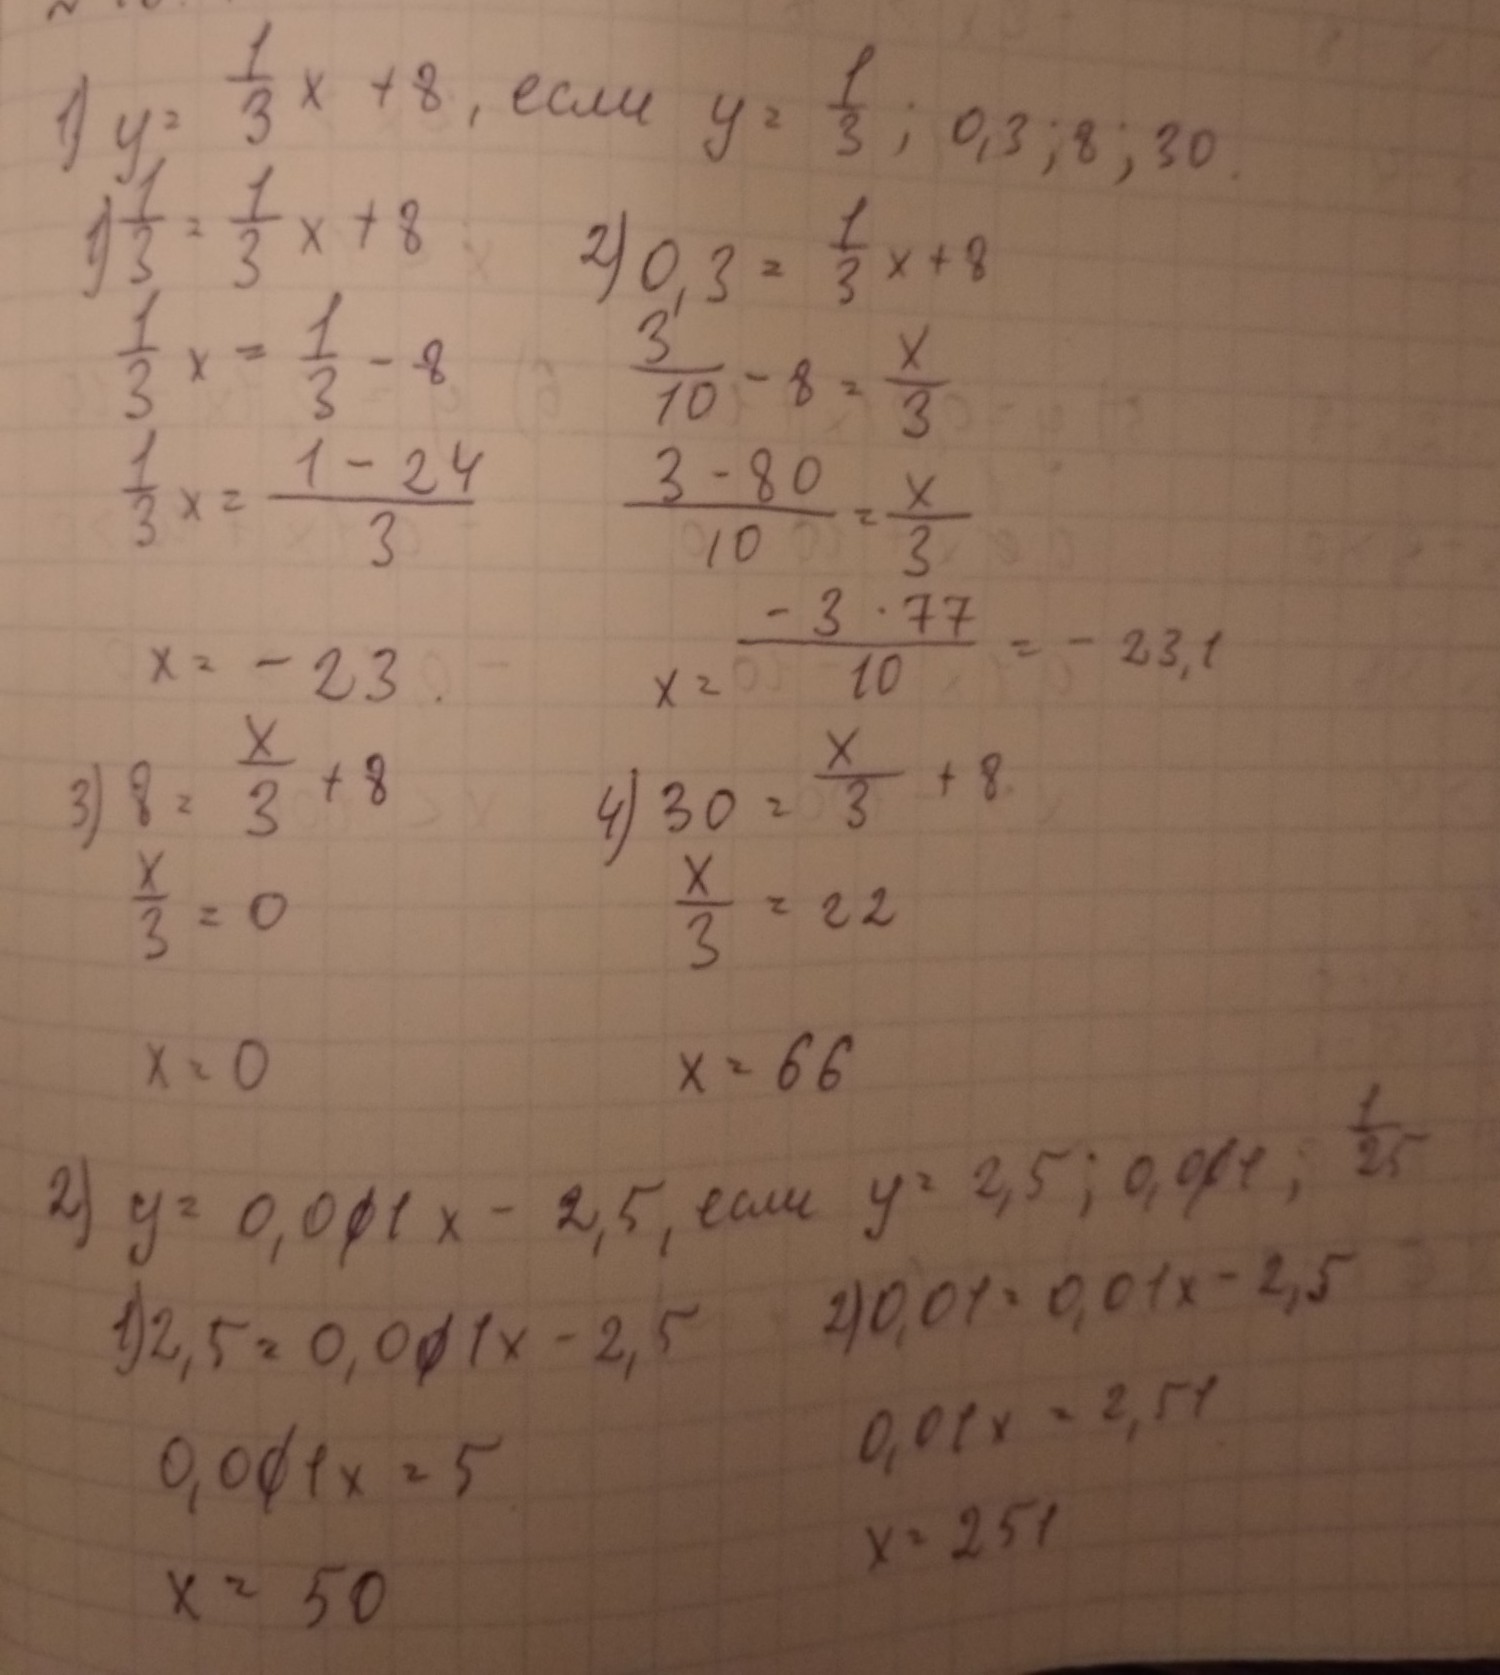 1) y = 1/3 x + 8, если y = 1/3; 0,3; 8; 30.
1) 1/3 = 1/3 x + 8
1/3 x = 1/3 - 8
1/3 x = (1 - 24)/3
x = -23.
2) 0,3 = 1/3 x + 8
3/10 - 8 = x/3
(3 - 80)/10 = x/3
x = (-3 · 77)/10 = -23,1
3) 8 = x/3 + 8
x/3 = 0
x = 0
4) 30 = x/3 + 8
x/3 = 22
x = 66
2) y = 0,01x - 2,5, если y = 2,5; 0,01; 1/25
1) 2,5 = 0,01x - 2,5
0,01x = 5
x = 50
2) 0,01 = 0,01x - 2,5
0,01x = 2,51
x = 251